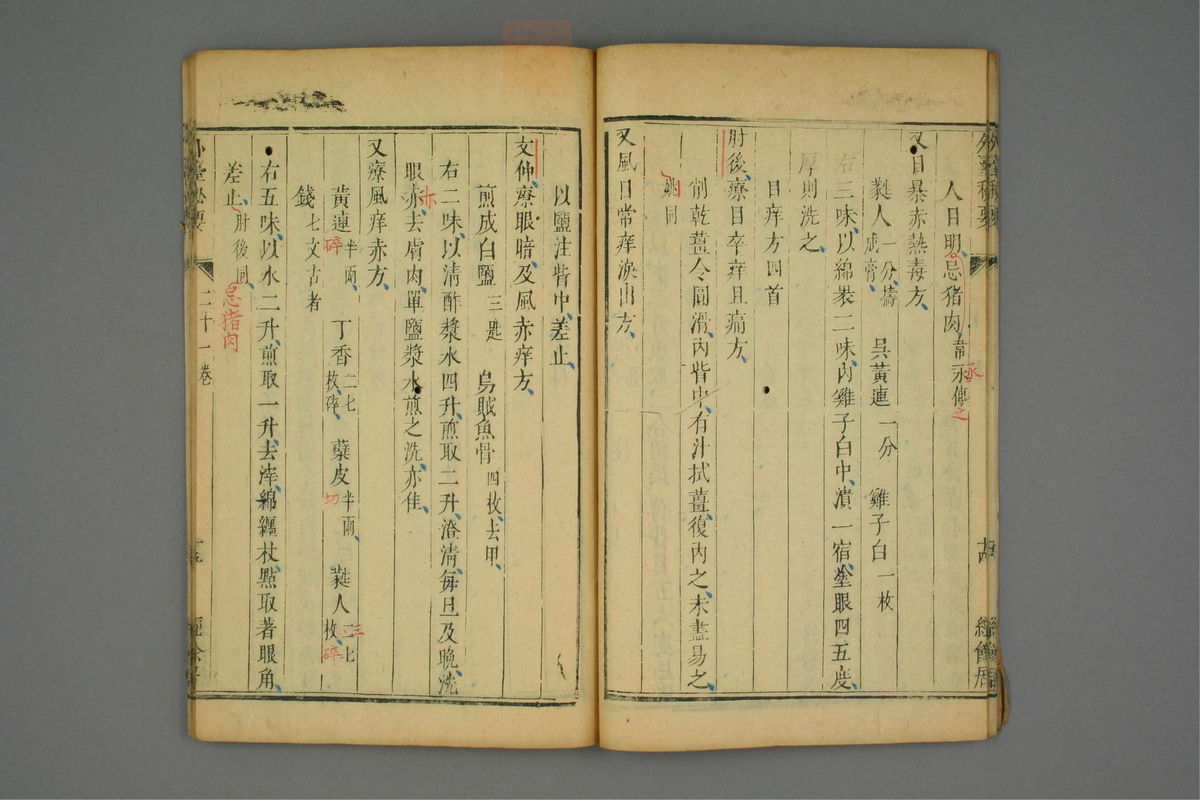 外臺秘要
人目明忌猪肉韋承傳之
又目暴赤熱毒方
蕤人一分擣成膏 呉黃連一分 雞子白一枚
右三味以綿裝二味內雞子白中漬一宿塗眼四五度
厚則洗之
目痒方四首
肘後療目卒痒且痛方
削乾薑令圓滑內眥中有汁拭薑復內之未盡易之
姚同
又風目常痒淚出方
以鹽注眥中差止
文仲療眼暗及風赤痒方
煎成白鹽三匙 烏賊魚骨四枚去甲
右二味以清酢漿水四升煎取二升澄清每旦及晚洗
眼赤去膚肉單鹽漿水煎之洗亦佳
又療風痒赤方
黃連半兩碎 丁香二七枚碎 蘗皮半兩切 蕤人三七枚碎
錢七文古者
右五味以水二升煎取一升去滓綿纏杖點取著眼角
差止肘後同忌猪肉
二十一卷
經餘居